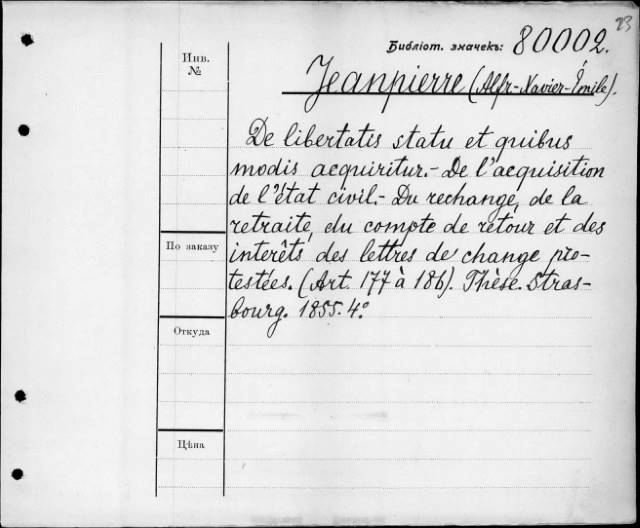 23
Библіот. значекъ: 80002.
Инв.
№
Jeanpierre (Alfr-Xavier-Émile).
De libertatis statu et quibus
modis acquiritur.- De l'acquisition
de l'état civil.- Du rechange, de la
retraite, du compte de retour et des
По заказу
interêts des lettres de change pro-
testées. (Art. 177 à 186). Thèse. Stras-
bourg. 1855. 4°.
Откуда
Цѣна